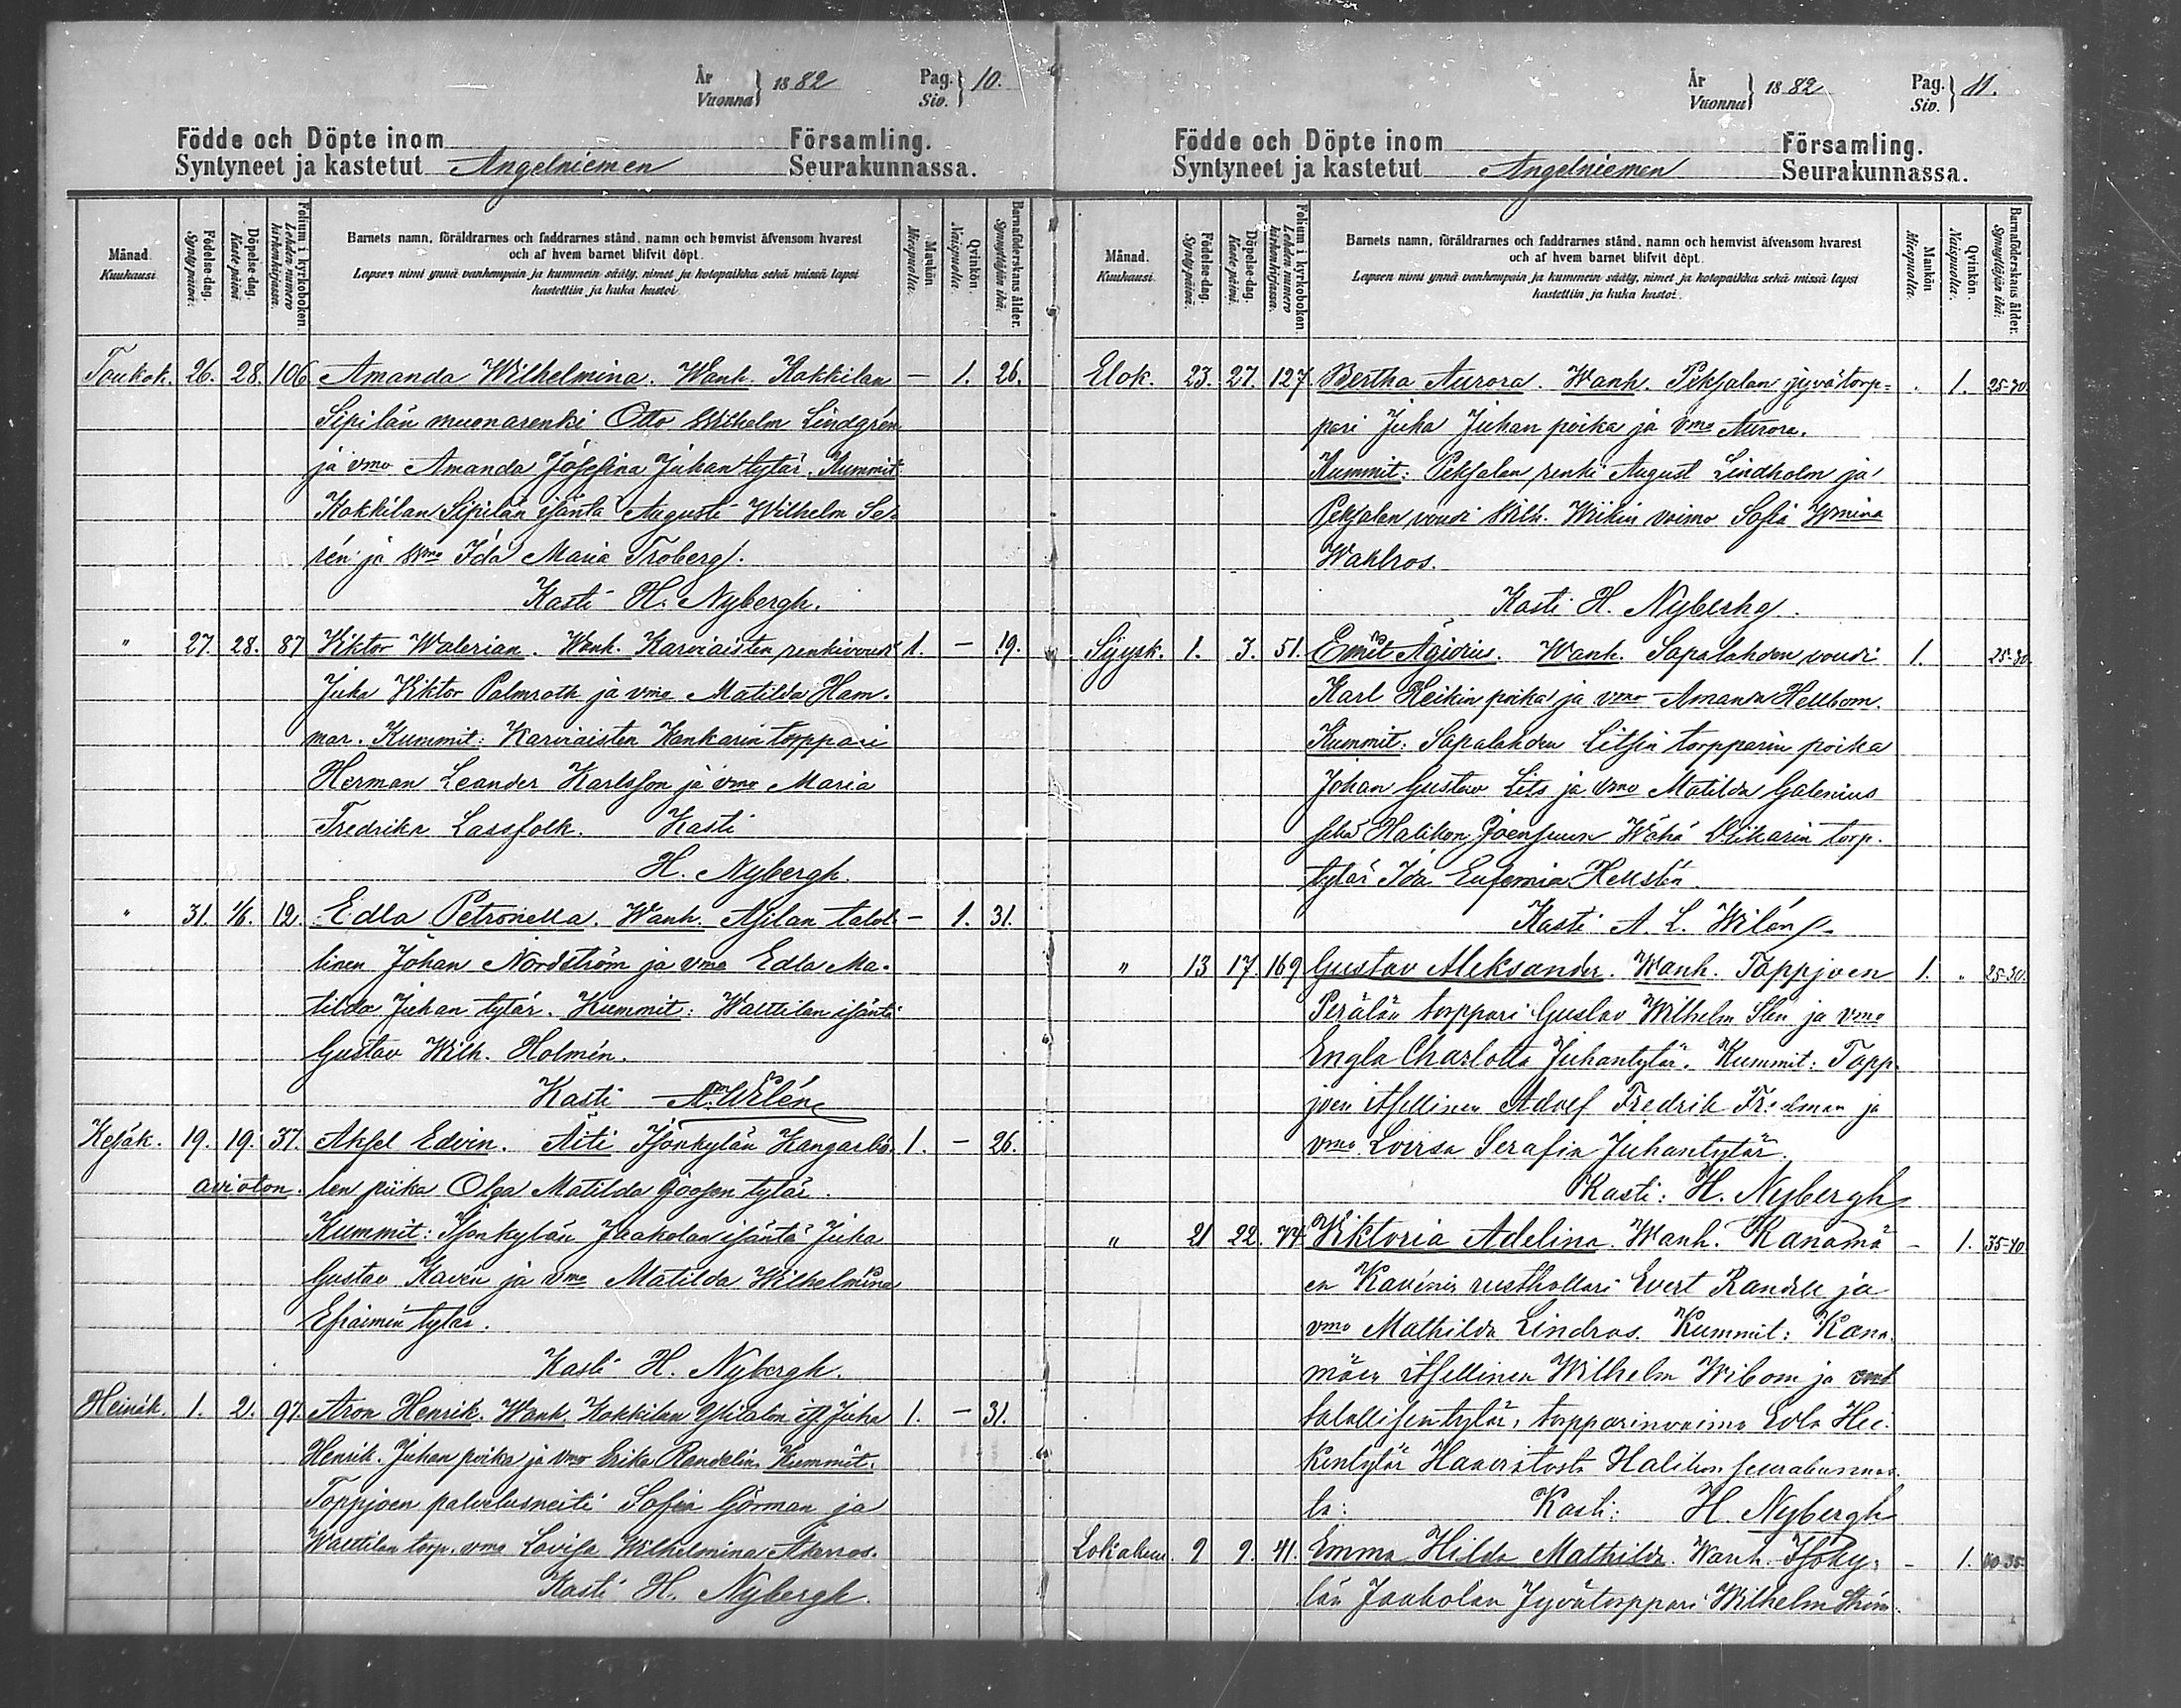 År
Vuonna } 1882
Pag.
Siv. } 10.
Födde och Döpte inom Församling.
Syntyneet ja kastetut Angelniemen Seurakunnassa.
Månad. Kuukausi.
Födelse-dag. Synty-päivä.
Döpelse-dag. Kaste-päivä.
Folium i kyrkoboken. Lehden numero kirkonkirjassa.
Barnets namn, föräldrarnes och faddrarnes stånd, namn och hemvist äfvensom hvarest
och af hvem barnet blifvit döpt.
Lapsen nimi ynnä vanhempain ja kummein sääty, nimet ja kotopaikka sekä missä lapsi
kastettiin ja kuka kastoi.
Mankön. Miespuolia.
Qvinkön. Naispuolia.
Barnaföderskans ålder. Synnyttäjän ikä.
Toukok. 26. 28. 106 Amanda Wilhelmina. Wanh. Kokkilan — 1. 26.
Sipilän muonarenki Otto Wilhelm Lindgrén
ja vmo Amanda Josefina Juhan tytär. Kummit
Kokkilan Sipilän isäntä Augusti Wilhelm Se-
rén ja vmo Ida Maria Troberg.
Kasti H. Nybergh.
" 27. 28. 87 Viktor Walerian. Wanh. Karviaisten renkivouti 1. — 19.
Juha Viktor Palmroth ja vmo Matilda Ham-
mar. Kummit: Karviaisten Kankarin torppari
Herman Leander Karlsson ja vmo Maria
Fredrika Lassfolk. Kasti
H. Nybergh.
" 31. 1/6. 12. Edla Petronella. Wanh. Asilan talol- — 1. 31.
linen Johan Nordström ja vmo Edla Ma-
tilda Juhan tytär. Kummit: Walttilan isäntä
Gustav Wilh. Holmén.
Kasti A. Wilén
Kesäk. 19. 19. 37. Aksel Edvin. Äiti Isonkylän Kangasbö- 1. — 26.
avioton. len piika Olga Matilda Joosen tytär.
Kummit: Isonkylän Jaakolan isäntä Juha
Gustav Kavén ja vmo Matilda Wilhelmina
Efraimin tytär.
Kasti H. Nybergh.
Heinäk. 1. 2. 97. Aron Henrik. Wanh. Kokkilan Ylitalon its. Juha 1. — 31.
Henrik Juhan poika ja vmo Erika Randelin. Kummit:
Toppjoen palvelusneiti Sofia Görman ja
Walttilan torp. vmo Lovisa Wilhelmina Åkerros.
Kasti H. Nybergh.
År
Vuonna } 1882
Pag.
Siv. } 11.
Födde och Döpte inom Församling.
Syntyneet ja kastetut Angelniemen Seurakunnassa.
Månad. Kuukausi.
Födelse-dag. Synty-päivä.
Döpelse-dag. Kaste-päivä.
Folium i kyrkoboken. Lehden numero kirkonkirjassa.
Barnets namn, föräldrarnes och faddrarnes stånd, namn och hemvist äfvensom hvarest
och af hvem barnet blifvit döpt.
Lapsen nimi ynnä vanhempain ja kummein sääty, nimet ja kotopaikka sekä missä lapsi
kastettiin ja kuka kastoi.
Mankön. Miespuolia.
Qvinkön. Naispuolia.
Barnaföderskans ålder. Synnyttäjän ikä.
Elok. 23. 27. 127. Bertha Aurora. Wanh. Peksalan jyvätorp- . 1. 25-30.
pari Juha Juhan poika ja vmo Aurora.
Kummit: Peksalan renki August Lindholm ja
Peksalan vouti Wilh. Wiikin vaimo Sofia Wmina
Wahlros.
Kasti H. Nyberhg.
Syysk. 1. 3. 51. Emil Ägidius. Wanh. Sapalahden voudi 1. 25-30.
Karl Heikin poika ja vmo Amanda Hellbom.
Kummit: Sapalahden Litsin torpparin poika
Johan Gustav Lits ja vmo Matilda Galenius
sekä Halikon Joensuun Wähä torp.
tytär Ida Eufemia Hellstén.
Kasti A. L. Wilén
" 13 17. 169 Gustav Aleksander. Wanh. Toppjoen 1. " 25-30.
Perälän torppari Gustav Wilhelm Sten ja vmo
Engla Charlotta Juhantytär. Kummit: Topp-
joen itsellinen Adolf Fredrik Fredman ja
vmo Lovisa Serafia Juhantytär.
Kasti: H. Nybergh
" 21 22. 74 Viktoria Adelina. Wanh. Kanamä- — 1. 35-40
en Kavénin rusthollari Evert Randell ja
vmo Mathilda Lindros. Kummit: Kana-
mäen itsellinen Wilhelm Wibom ja
talollisen tytär, torpparinvaimo Edla Hei-
kintytär Haveristosta Halikon seurakunnas-
ta: Kasti: H. Nybergh
Lokakuu. 9 9. 41. Emma Hilda Mathilda. Wanh. Isoky- — 1. 30-35
län Jaakolan Jyvätorppari Wilhelm Ström-